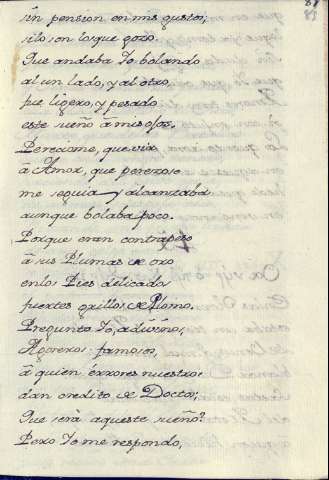 sin pension en mis gustos,
si lo son los que gozo.
Que andaba Yo bolando
al un lado, y al otro,
fue ligero, y pesado
este sueño â mis ojos.
Pareciame, que veìa
â Amor, que perezoso
me seguia y alcanzaba
aunque bolaba poco.
Porque eran contrapeso
â sus Plumas de oro
en los Pies delicados
fuertes grillos de Plomo.
Pregunto Yo, adivinos,
Agoreros famosos,
â quien errores nuestros
dan credito de Doctos;
Que serà aqueste sueño?
Pero Yo me respondo,